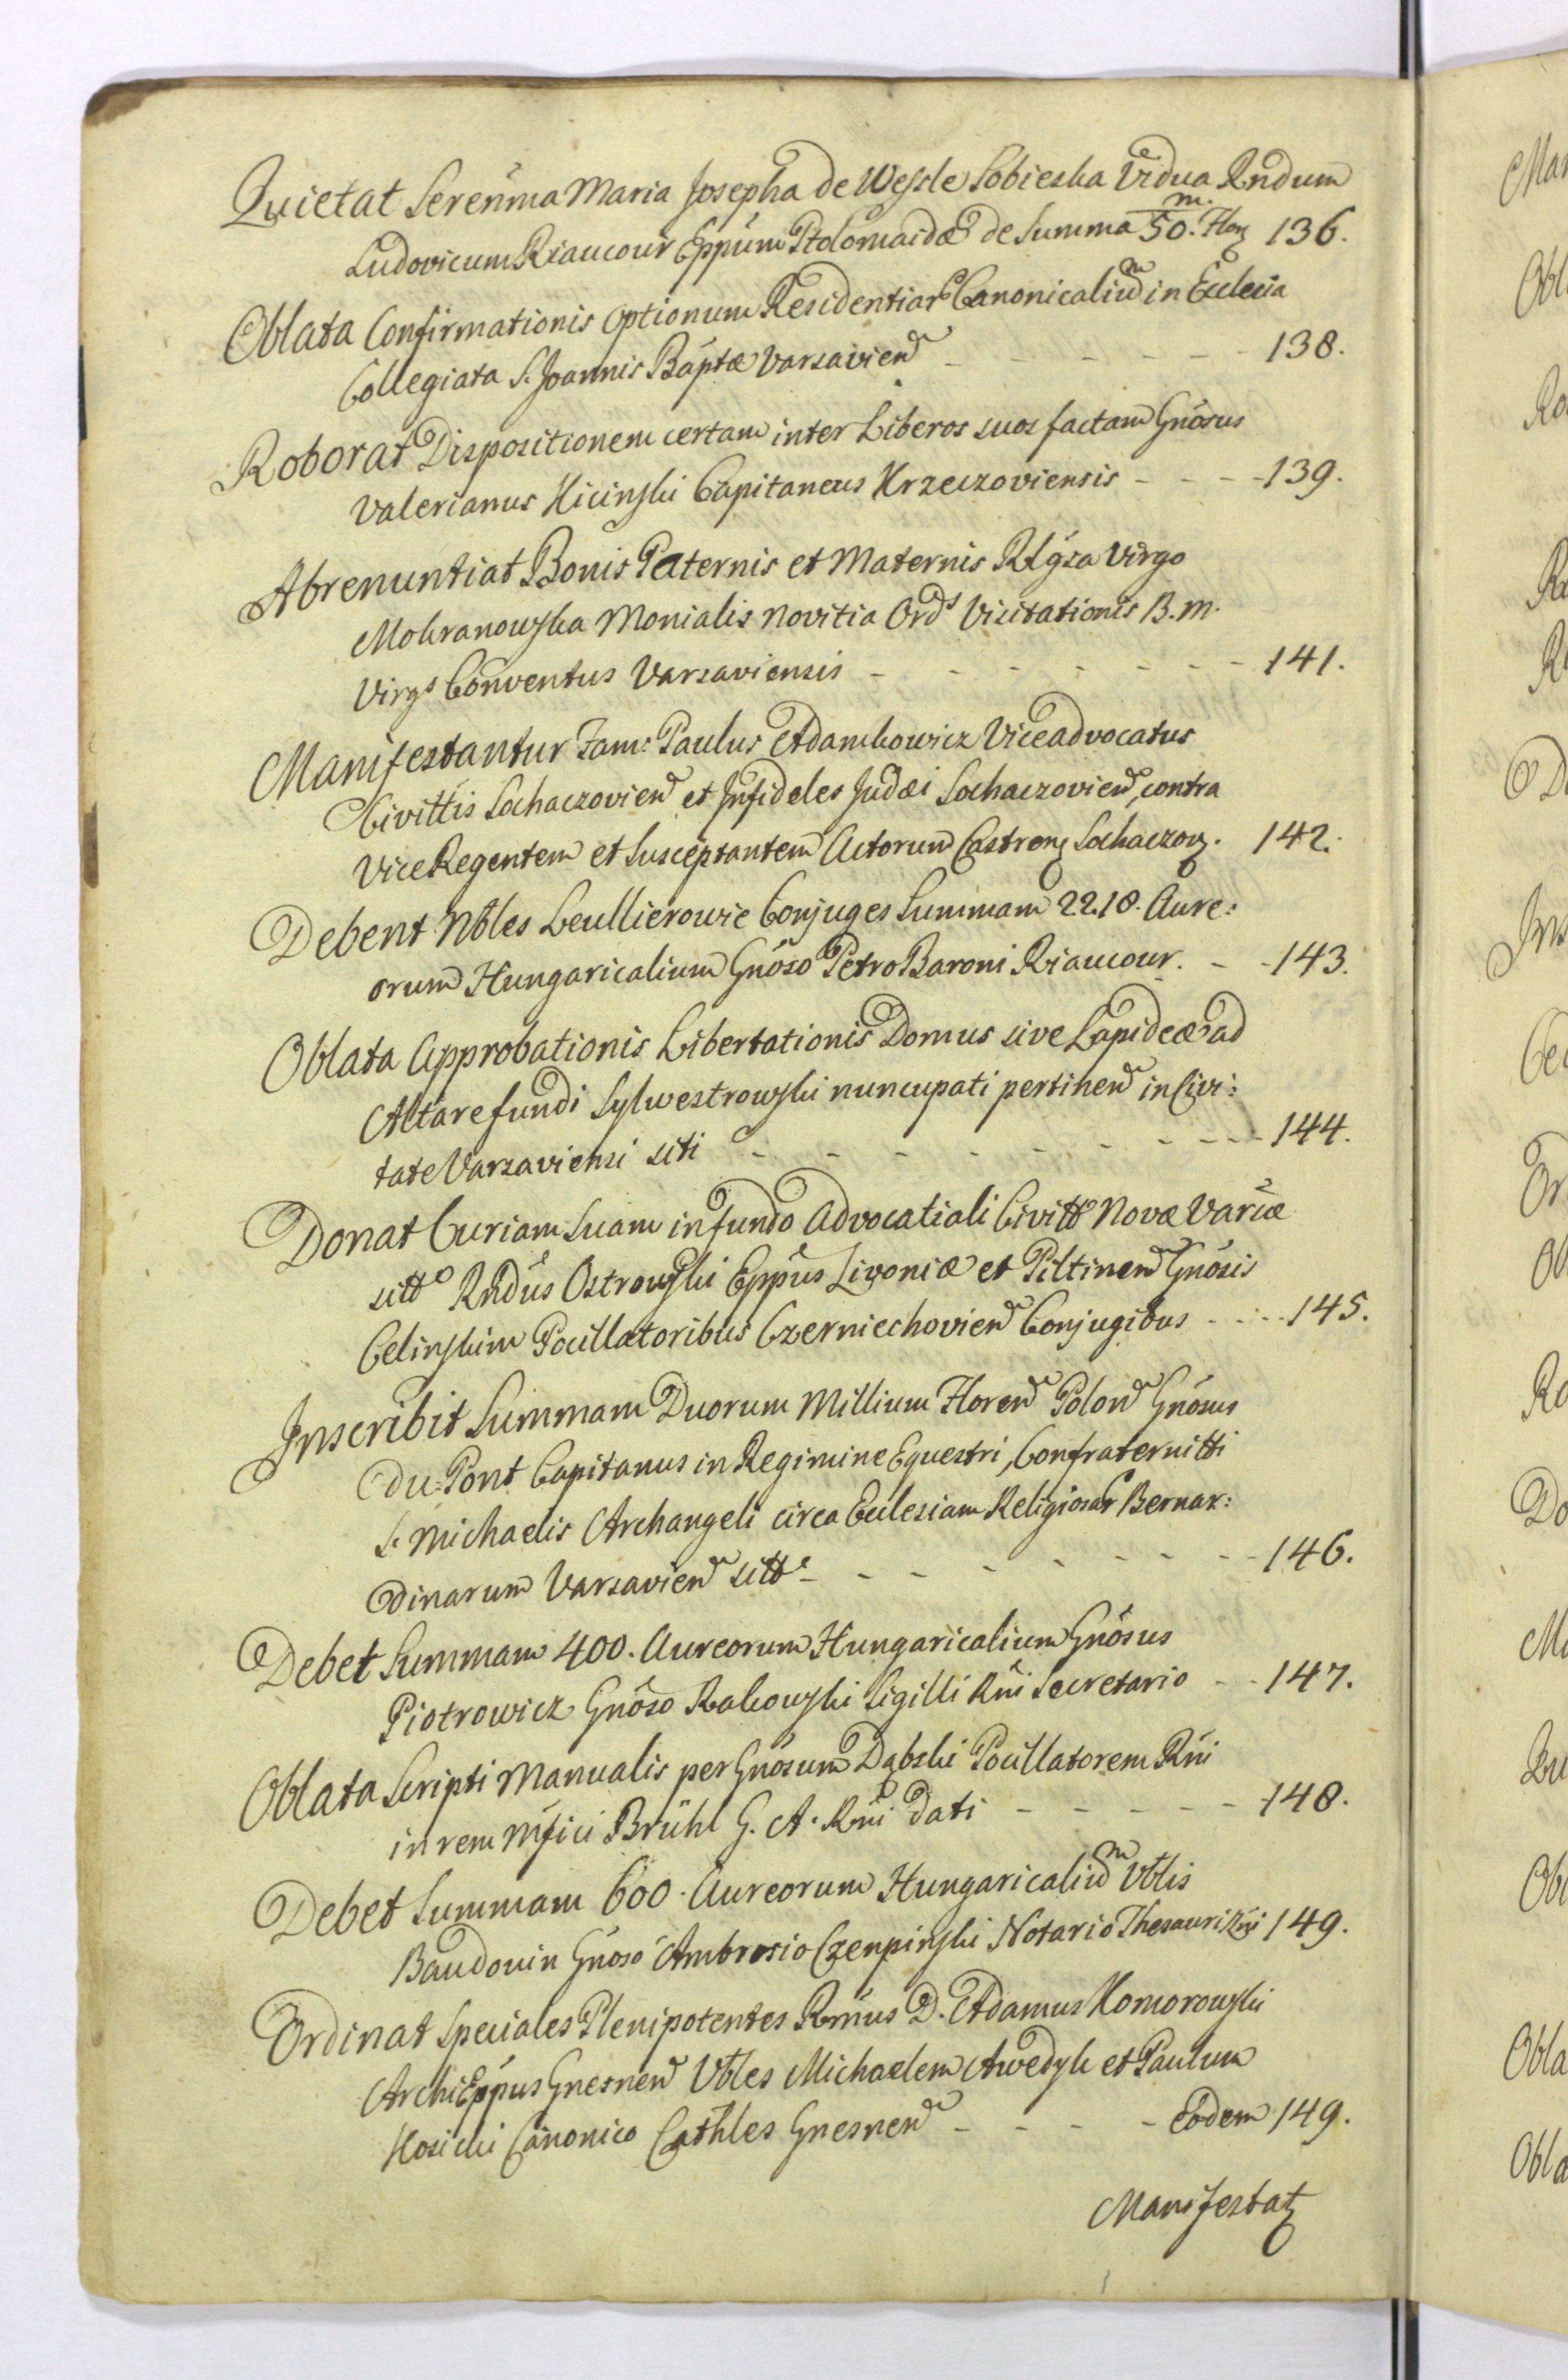 Quietat Serenma Maria Josepha de Wessle Sobieska Vidua Rndum
Ludovicum Riaucour Eppum Ptolomaidæ de Summa 50. m. Flor 136.
Oblata Confirmationis Optionum Residentiar Canonicaliu͠m in Ecclecia
Collegiata S. Joannis Baptæ Varsavien - - - - - 138.
Roborat Dispositionem certam inter Liberos suos factam Gnosus
Valerianus Kicinski Capitaneus Krzeczoviensis - - - 139.
Abrenuntiat Bonis Paternis et Maternis Rlgsa Virgo
Mokranowska Monialis Novitia Ords Visitationis B. M.
Virgs Conventus Varsaviensis - - - - - - 141.
Manifestantur Fam: Paulus Adamkowicz Viceadvocatus
Civittis Sochaczovien et Infideles Judæi Sochaczovien, contra
ViceRegentem et Susceptantem Actorum Castren Sochaczov. 142.
Debent Nbles Leullierowie Conjuges Summam 2218. Aure:
orum Hungaricalium Gnoso Petro Baroni Riaucour. - - 143.
Oblata Approbationis Libertationis Domus sive Lapideæ ad
Altare fundi Sylwestrowski nuncupati pertinen in Civi:
tate Varsaviensi siti - - - - - - - - 144.
Donat Curiam Suam in fundo Advocatiali Civitt Novæ Variæ
sitt Rndus Ostrowski Eppus Livoniæ et Piltinen Gnosis
Celinskim Pocillatoribus Czerniechovien Conjugibus - - - 145.
Inscribit Summam Duorum Millium Floren Polon Gnosus
Du-Pont Capitanus in Regimine Equestri, Confraternitti
S. Michaelis Archangeli circa Ecclesiam Religiosar Bernar:
dinarum Varsavien sitt - - - - - - - 146.
Debet Summam 400. Aureorum Hungaricalium Gnosus
Piotrowicz Gnoso Rakowski Sigilli Rni Secretario - - 147.
Oblata Scripti Manualis per Gnosum Dąbski Pocillatorem Rni
in rem Mfici Brühl G. A. Rni Dati - - - - - 148.
Debet Summam 600. Aureorum Hungaricalium Nblis
Baudouin Gnoso Ambrosio Czenpinski Notario Thesauri Rni 149.
Ordinat Speciales Plenipotentes Rmus D. Adamus Komorowski
ArchiEppus Gnesnen Vbles Michaelem Awedyk et Paulum
Kosicki Canonico Cathles Gnesnen - - - - Eodem 149.
Manifestat